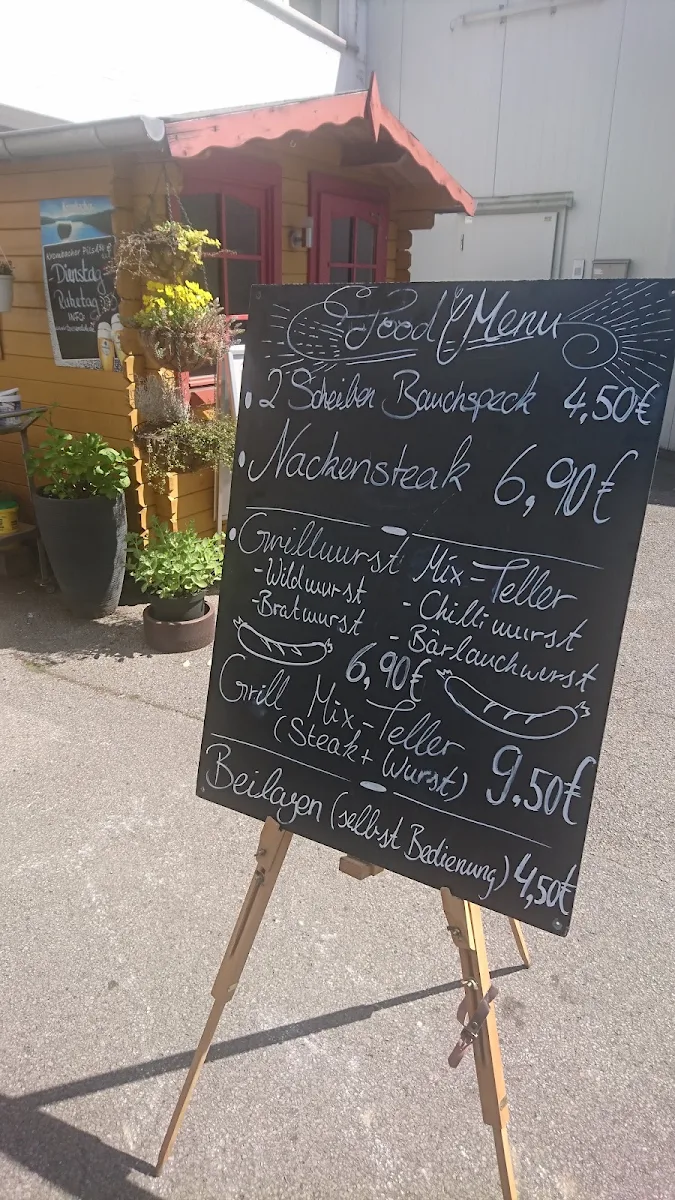 Krombacher Pils
Dienstag
Ruhetag
INFO:
Food Menu
2 Scheiben Bauchspeck 4,50€
Nackensteak 6,90€
Grillwurst Mix-Teller
-Wildwurst - Chilliwurst
-Bratwurst - Bärlauchwurst
6,90€
Grill Mix-Teller
(Steak+ Wurst) 9,50€
Beilagen (selbst Bedienung) 4,50€